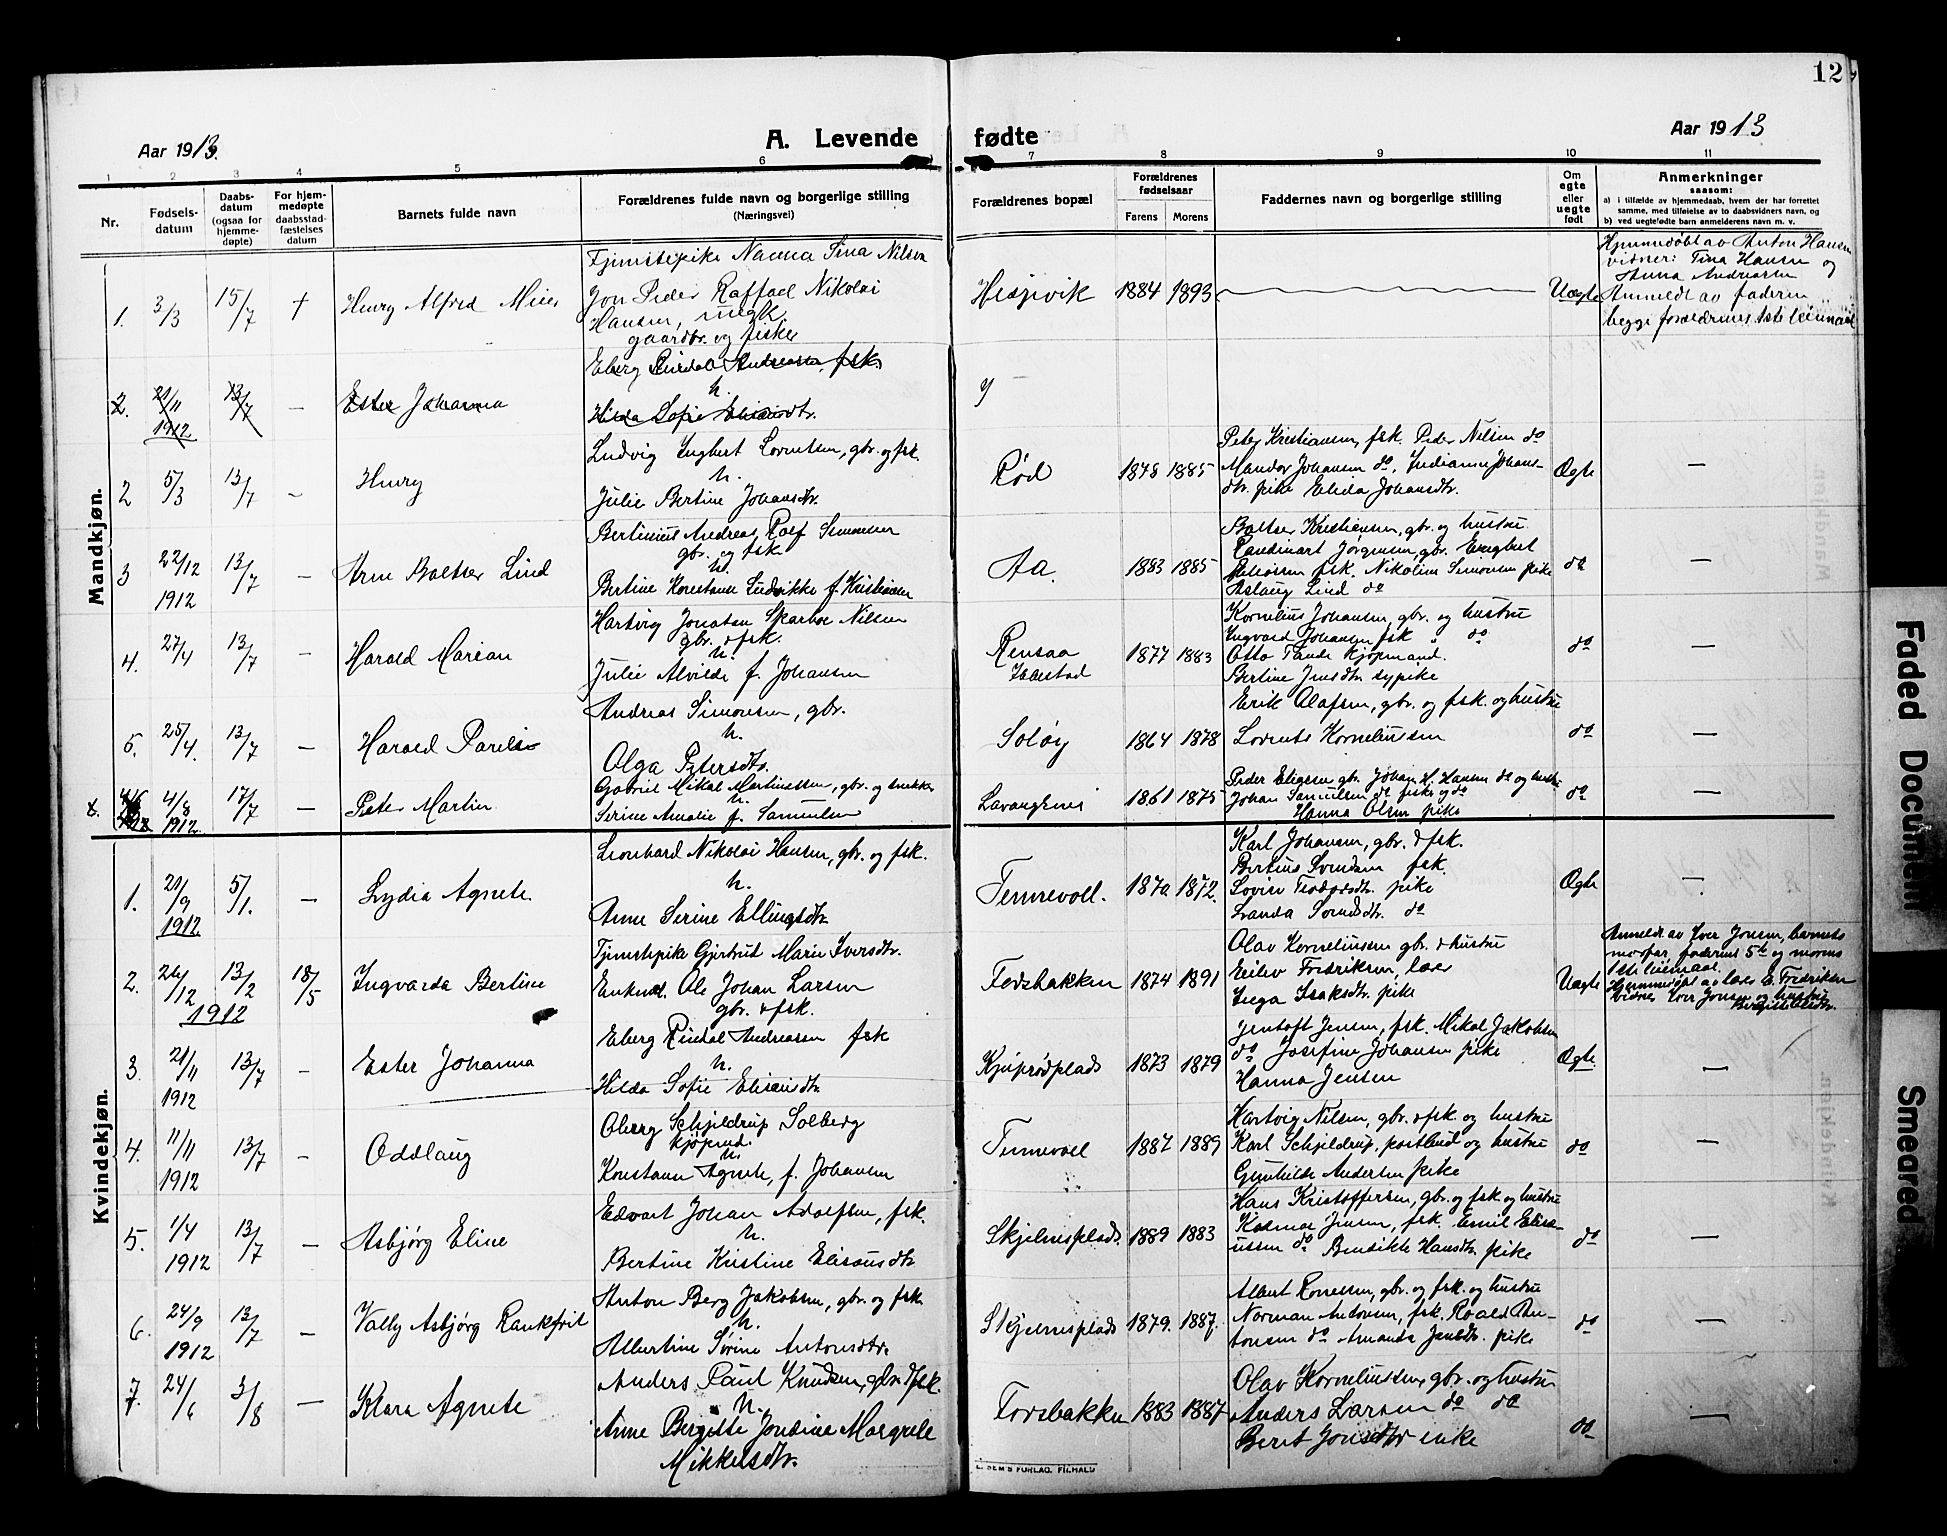 12
Aar 1913.
A. Levende fødte
Aar 1913
1 2 3 4 5 6 7 8 9 10 11
Nr.
Fødsels-
datum
Daabs-
datum
(ogsaa for
hjemme-
døpte)
For hjem-
medøpte
daabsstad-
fæstelses
datum
Barnets fulde navn
Forældrenes fulde navn og borgerlige stilling
(Næringsvei)
Forældrenes bopæl
Forældrenes
fødselsaar
Farens Morens
Faddernes navn og borgerlige stilling
Om
egte
eller
uegte
født
Anmerkninger
saasom:
a) i tilfælde av hjemmedaab, hvem der har forrettet
samme, med tilføielse av to daabsvidners navn, og
b) ved uegtefødte barn anmelderens navn m. v.
Mandkjøn.
1. 3/3 15/7 † Henry Alfred Meier
Tjenestepike Nanna Tina Nilsen
Jon Peder Raffael Nikolai
Hansen, ungk.
gaardbr. og fisker
Hesjevik 1884 1893 Uægte
Hjemmedøbt av Anton Hansen
vidner: Tina Hansen og
Anna Andreassen
Anmeldt av faderen
begge forældrenes 1ste leiermaal
2. 21/11 1912 13/7 — Ester Johanna
Eberg Rindal Andreassen, fsk.
h.
Hilda Sofie Elisæusdtr.
2 5/3 13/7 — Henry
Ludvig Ingbert Lorentsen, gbr. og fsk.
h.
Julie Bertine Johansdtr.
Rød 1878 1885
Peter Kristiansen, fsk. Peder Nilsen do
Mandor Johansen do, Indianne Johans-
dtr. pike Elida Johansdtr.
Ægte —
3 22/12 1912 13/7 — Arne Baltser Lind
Bertinius Andreas Rolf Simonsen
gbr. og fsk.
h.
Bertine Konstanse Ludvikke f. Kristiansen
Aa. 1883 1885
Baltser Kristiansen, gbr. og hustru
Randinart Jörgensen, gbr. Engbret
fsk. Nikoline Simonsen pike
Aslaug Lind do
do —
4. 27/4 13/7 — Harald Marian
Hartvig Jonatan Skarbo Nilsen
gbr. & fsk.
h.
Julie Alvilde f. Johansen
Rensaa
Ibbestad 1877 1883
Kornelius Johansen, gbr. og hustru
Ingvard Johansen fsk „ do
Otto Tande kjøpmand.
Bertine Jensdtr. sypike
do —
5. 25/4. 13/7 — Harald Parelius
Andreas Simonsen, gbr.
h.
Olga Petersdtr.
Soløy 1864 1878
Erik Olafsen, gbr. og fsk. og hustru
Lorents Korneliussen
do —
4/8 1912. 17/7 — Peter Martin
Gabriel Mikal Martinussen, gbr. og snekker
h.
Serine Amalie f. Samuelsen
Lavangsnes 1861 1875
Peder Eliassen gbr. Johan H. Hansen do og hustru
Johan Samuelsen do fisker og do
Hanna Olsen pike
do —
Kvindekjøn.
1. 21/9 1912 5/1. — Lydia Agnete
Leonhard Nikolai Hansen, gbr. og fsk.
h.
Anne Serine Ellingsdtr
Tennevoll. 1870 1872.
Karl Johansen, gbr. & fsk.
Bertius Svendsen fsk.
Lovise Teodorsdtr. pike
Landa Svendsdtr. do
Ægte —
2. 26/12 1912 13/2 18/5 Ingvarda Bertine
Tjenestepike Gjertrud Marie Iversdtr.
Enkem. Ole Johan Larsen
gbr. & fsk.
Fosbakken 1874 1891
Olav Korneliussen gbr. & hustru
Eilev Fredriksen, lærer
Inga Isaksdtr. pike
Uægte
Anmeldt av Iver Jonsen, barnets
morfar, faderens 5te og morens
1ste leiermaal.
Hjemmedøbt av lærer E. Fredriksen
vidner Iver Jonsen og hustru
3. 21/11 1912 13/7 — Ester Johanna
Eberg Rindal Andreassen fsk
h.
Hilda Sofie Elisæusdtr
Kjeiprødplads 1873 1879
Jentoft Jensen, fsk. Mikal Jakobsen
do Josefine Johansen pike
Hanna Jensen
Ægte. —
4. 11/11 1912 13/7 — Oddlaug
Oberg Schjeldrup Solberg
kjøpmd.
h.
Konstanse Agnete, f. Johansen
Tennevoll 1887 1889
Hartvig Nilsen, gbr. & fsk. og hustru
Karl Schjeldrup, postbud og hustru
Gunhilde Andersen pike
do —
5. 1/4 1912 13/7 — Asbjørg Eline
Edvart Johan Adolfsen, fsk.
h.
Bertine Kristine Elisæusdtr
Skjelnesplads. 1889 1883
Hans Kristoffersen, gbr. og fsk. og hustru
Kosmos Jensen, fsk. Emil Elisæ-
ussen do Bendikte Hansdtr. pike
do —
6. 24/9 1912 13/7 — Vally Asbjørg Rankfrit
Anton Berg Jakobsen, gbr. og fsk.
h.
Albertine Sörine Antonsdtr.
Skjelnesplads 1879. 1887.
Albert Konelsen, gbr. og fsk. og hustru
Norman Andersen, fsk. Roald An-
tonsen do Amanda Jensdtr. pike
do —
7. 24/6 3/8 — Klara Agnete
Anders Paul Knudsen, gbr. & fsk.
h.
Anne Bergitte Jondine Margrete
Mikkelsdtr.
Fosbakken 1883 1887
Olav Korneliussen, gbr. og hustru
Anders Larsen do do
Berit Jonsdtr pike
do —
E. SEM'S FORLAG, FR.HALD
Faded Document
Smeared